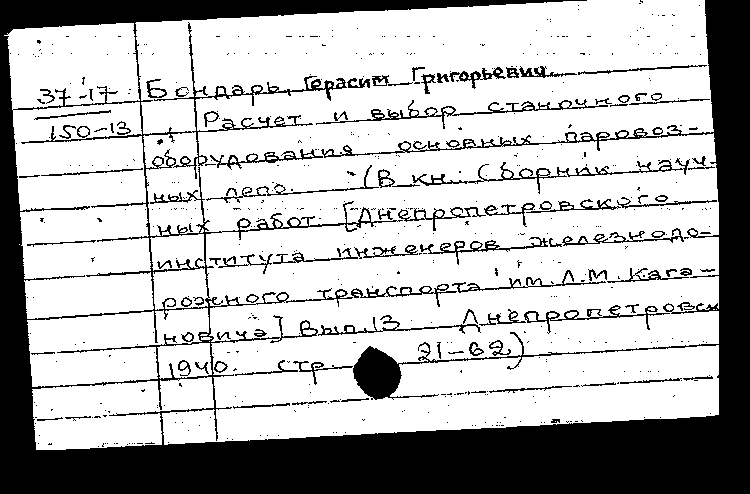 37-17
150-13
Бондарь, Герасим Григорьевич.
Расчет и выбор станочного
оборудования основных паровоз-
ных депо. (В кн: Сборник науч-
ных работ. [Днепропетровского
института инженеров железнодо-
рожного транспорта им. Л.М. Кага-
новича] Вып. 13 Днепропетровск
1940. стр. 21-62)